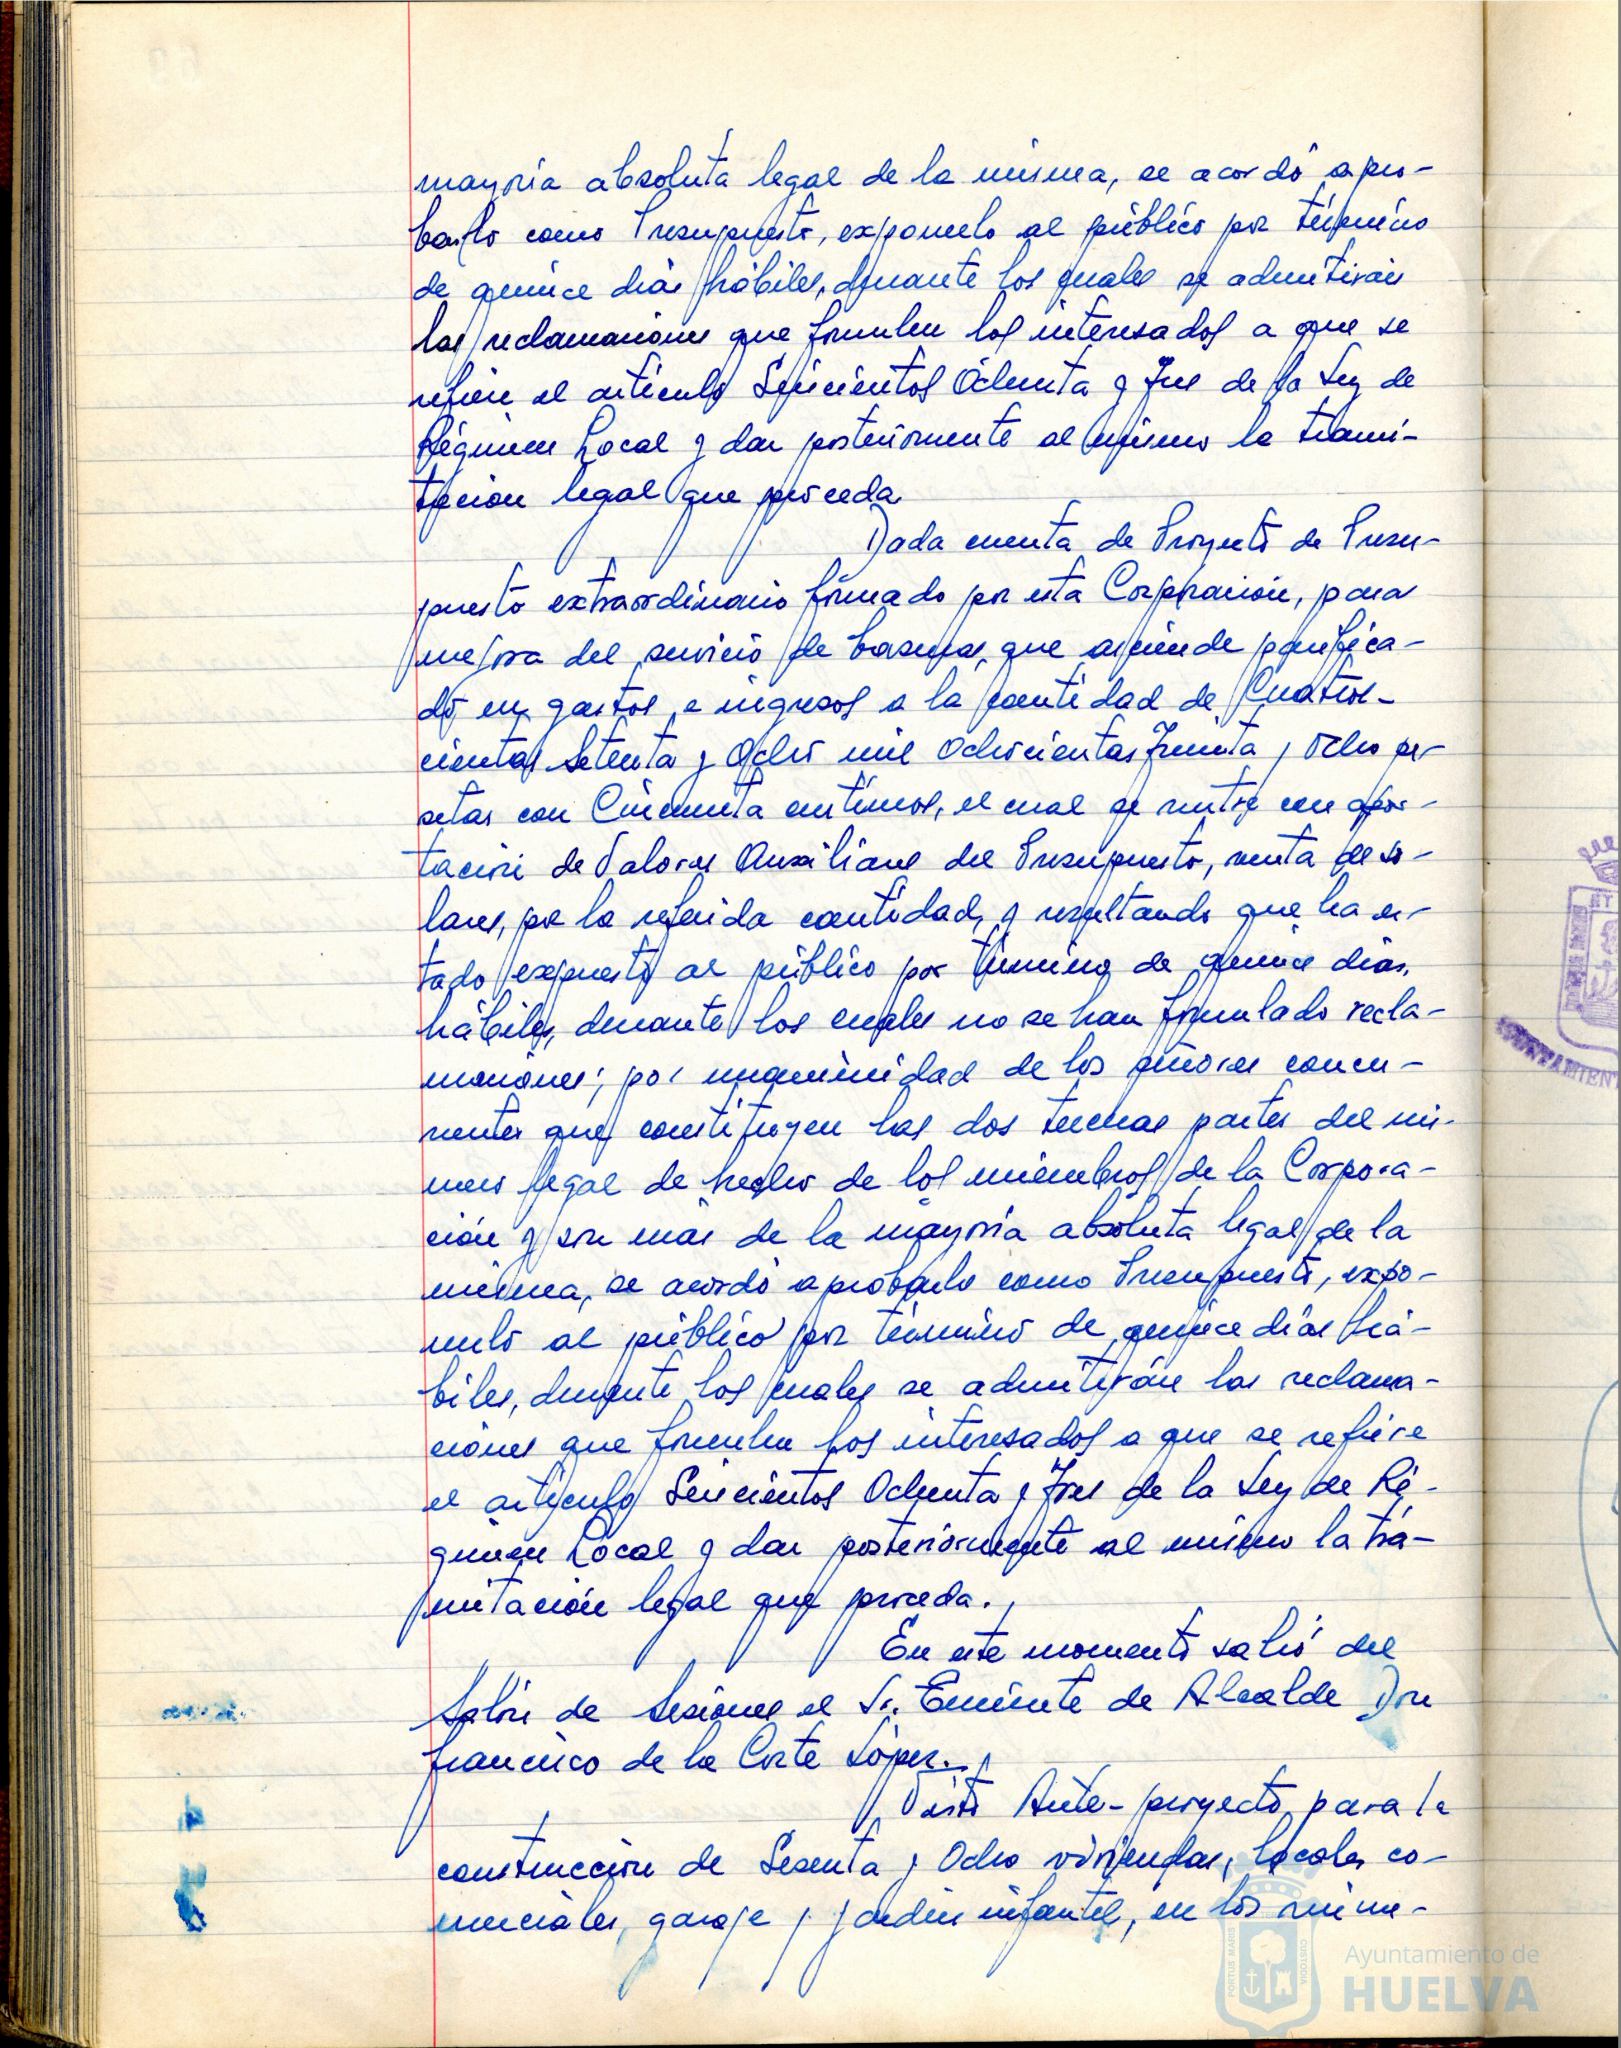 mayoría absoluta legal de la misma, se acordó apro-
barlo como Presupuesto, exponerlo al público por término
de quince días hábiles, durante los cuales se admitirán
las reclamaciones que formulen los interesados a que se
refiere el artículo Seiscientos Ochenta y Tres de la Ley de
Régimen Local y dar posteriormente al mismo la trami-
tación legal que proceda.
Dada cuenta de Proyecto de Presu-
puesto extraordinario formado por esta Corporación, para
mejora del servicio de basuras, que asciende panifica-
do en gastos e ingresos a la cantidad de Cuatros-
cientas Setenta y Ocho mil Ochocientas Treinta y Ocho pe-
setas con Cincuenta céntimos, el cual se nutre con apor-
tación de Valores Auxiliares del Presupuesto, venta de so-
lares, por la referida cantidad, y resultando que ha es-
tado expuesto al público por término de quince días
hábiles, durante los cuales no se han formulado recla-
maciones; por unanimidad de los señores concu-
rrentes que constituyen las dos terceras partes del nú-
mero legal de hecho de los miembros de la Corpora-
ción y son más de la mayoría absoluta legal de la
misma, se acordó aprobarlo como Presupuesto, expo-
nerlo al público por término de quince días há-
biles, durante los cuales se admitirán las reclama-
ciones que formulen los interesados a que se refiere
el artículo Seiscientos Ochenta y Tres de la Ley de Ré-
gimen Local y dar posteriormente al mismo la tra-
mitación legal que proceda.
En este momento salió del
Salón de Sesiones el Sr. Teniente de Alcalde Don
Francisco de la Corte López.
Visto Ante-proyecto para la
construcción de Sesenta y Ocho viviendas, locales co-
merciales, garaje y jardín infantil, en los núme-
PORTUS MARIS
CUSTODIA
Ayuntamiento de
HUELVA